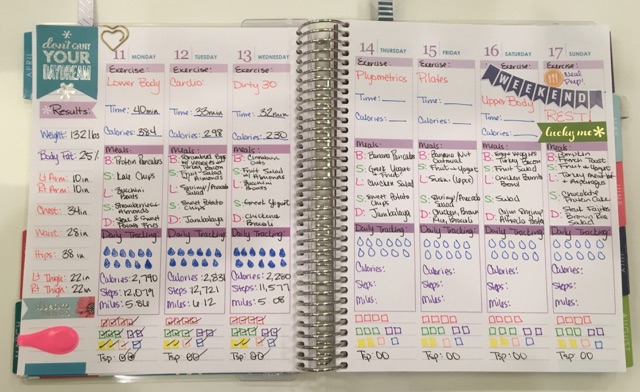 APRIL
don't QUIT
YOUR
DAYDREAM
Results:
Weight: 132 lbs
Body Fat: 25%
Lt Arm: 10in
Rt Arm: 10in
Chest: 34in
Waist: 28in
Hips: 38 in
Lt Thigh: 22in
Rt Thigh: 22in
11 MONDAY
Exercise:
Lower Body
Time: 40min
Calories: 384
Meals:
B: Protein Pancakes
S:
L: Zucchini
S: Strawberries
Almonds
D:
Daily Tracking:
Calories: 2,790
Steps: 12,079
Miles: 5.86
Tsp: 00
12 TUESDAY
Exercise:
Cardio
Time: 33min
Calories: 298
Meals:
B: Scrambled Egg
Turkey Bacon
S: Fruit Salad
Almonds
L: Shrimp/Avocado
Salad
S: Sweet Potato
Chips
D: Jambalaya
Daily Tracking:
Calories: 2,831
Steps: 12,721
Miles: 6.12
Tsp: 00
13 WEDNESDAY
Exercise:
Dirty 30
Time: 32min
Calories: 230
Meals:
B: Cinnamon
Oats
S: Fruit Salad
Almonds
L: Zucchini
S: Greek Yogurt
D: Chicken
Broccoli
Daily Tracking:
Calories: 2,280
Steps: 11,577
Miles: 5.08
Tsp: 00
14 THURSDAY
Exercise:
Plyometrics
Time:
Calories:
Meals:
B: Banana Pancakes
S: Greek Yogurt
+ Fruit
L: Chicken Salad
S: Sweet Potato
Chips
D: Jambalaya
Daily Tracking:
Calories:
Steps:
Miles:
Tsp: 00
15 FRIDAY
Exercise:
Pilates
Time:
Calories:
Meals:
B: Banana Nut
Oatmeal
S: Fruit + Yogurt
L:
S: Shrimp/Avocado
Salad
D: Chicken, Brown
Rice, Broccoli
Daily Tracking:
Calories:
Steps:
Miles:
Tsp: 00
16 SATURDAY
Exercise:
WEEKEND
Upper Body
Time:
Calories:
Meals:
B: Egg Whites
Turkey Bacon
S: Fruit Salad
L: Chicken Burrito
Bowl
S: Salad
D: Cajun Shrimp/
Alfredo Pasta
Daily Tracking:
Calories:
Steps:
Miles:
Tsp: 00
17 SUNDAY
Exercise:
Meal
Prep!
REST!
lucky me
Meals:
B:
French Toast
S: Fruit + Yogurt
L: Turkey
+ Asparagus
S: Chocolate
Protein Cake
D: Steak Fajitas
Brown Rice
Daily Tracking:
Calories:
Steps:
Miles:
Tsp: 00